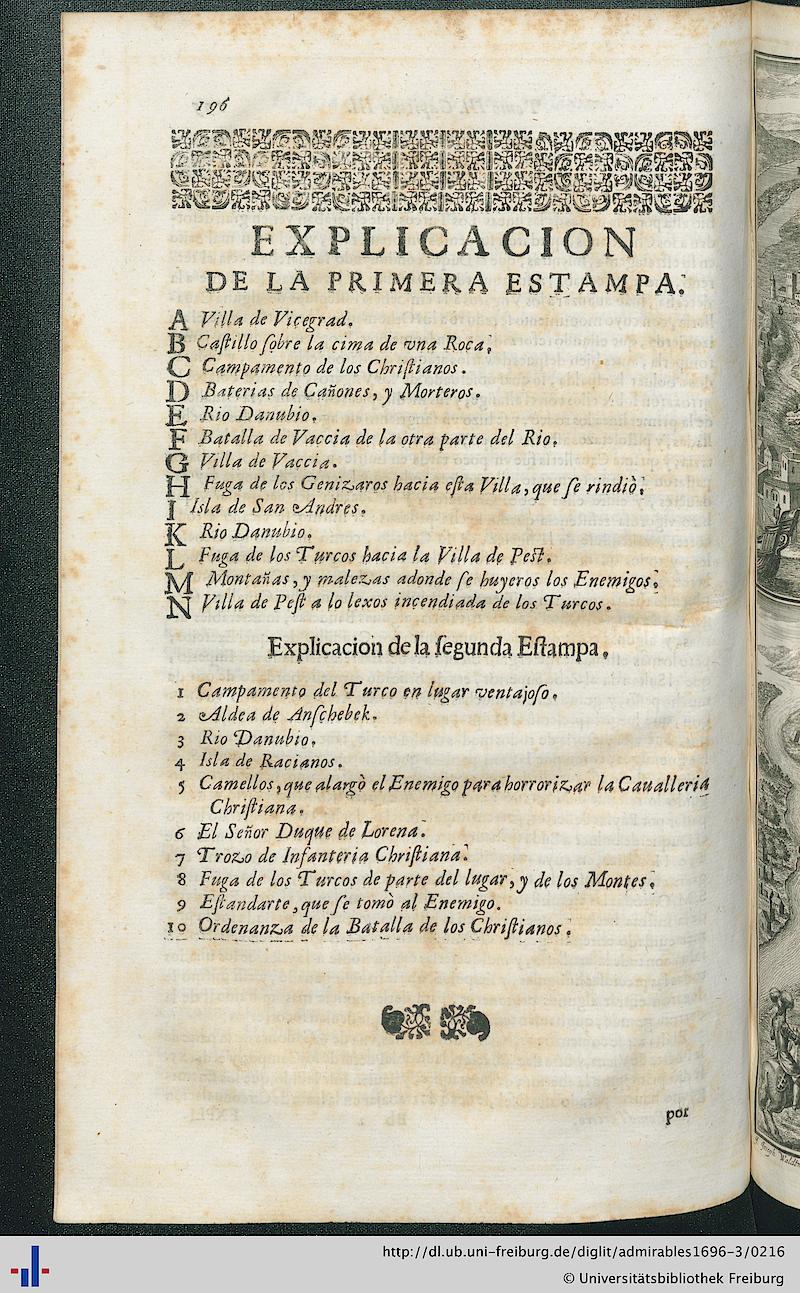 196
EXPLICACION
DE LA PRIMERA ESTAMPA.
A Villa de Vicegrad.
B Caſtillo ſobre la cima de vna Roca.
C Campamento de los Chriſtianos.
D Baterias de Cañones, y Morteros.
E Rio Danubio.
F Batalla de Vaccia de la otra parte del Rio.
G Villa de Vaccia.
H Fuga de los Genizaros hacia eſta Villa, que ſe rindiò.
I Isla de San Andres.
K Rio Danubio.
L Fuga de los Turcos hacia la Villa de Peſt.
M Montañas, y malezas adonde ſe huyeros los Enemigos.
N Villa de Peſt a lo lexos incendiada de los Turcos.
Explicacion de la ſegunda Eſtampa.
1 Campamento del Turco en lugar ventajoſo.
2 Aldea de Anſchebek.
3 Rio Danubio.
4 Isla de Racianos.
5 Camellos, que alargò el Enemigo para horrorizar la Caualleria
Chriſtiana.
6 El Señor Duque de Lorena.
7 Trozo de Infanteria Chriſtiana.
8 Fuga de los Turcos de parte del lugar, y de los Montes.
9 Eſtandarte, que ſe tomò al Enemigo.
10 Ordenanza de la Batalla de los Chriſtianos.
por
http://dl.ub.uni-freiburg.de/diglit/admirables1696-3/0216
© Universitätsbibliothek Freiburg